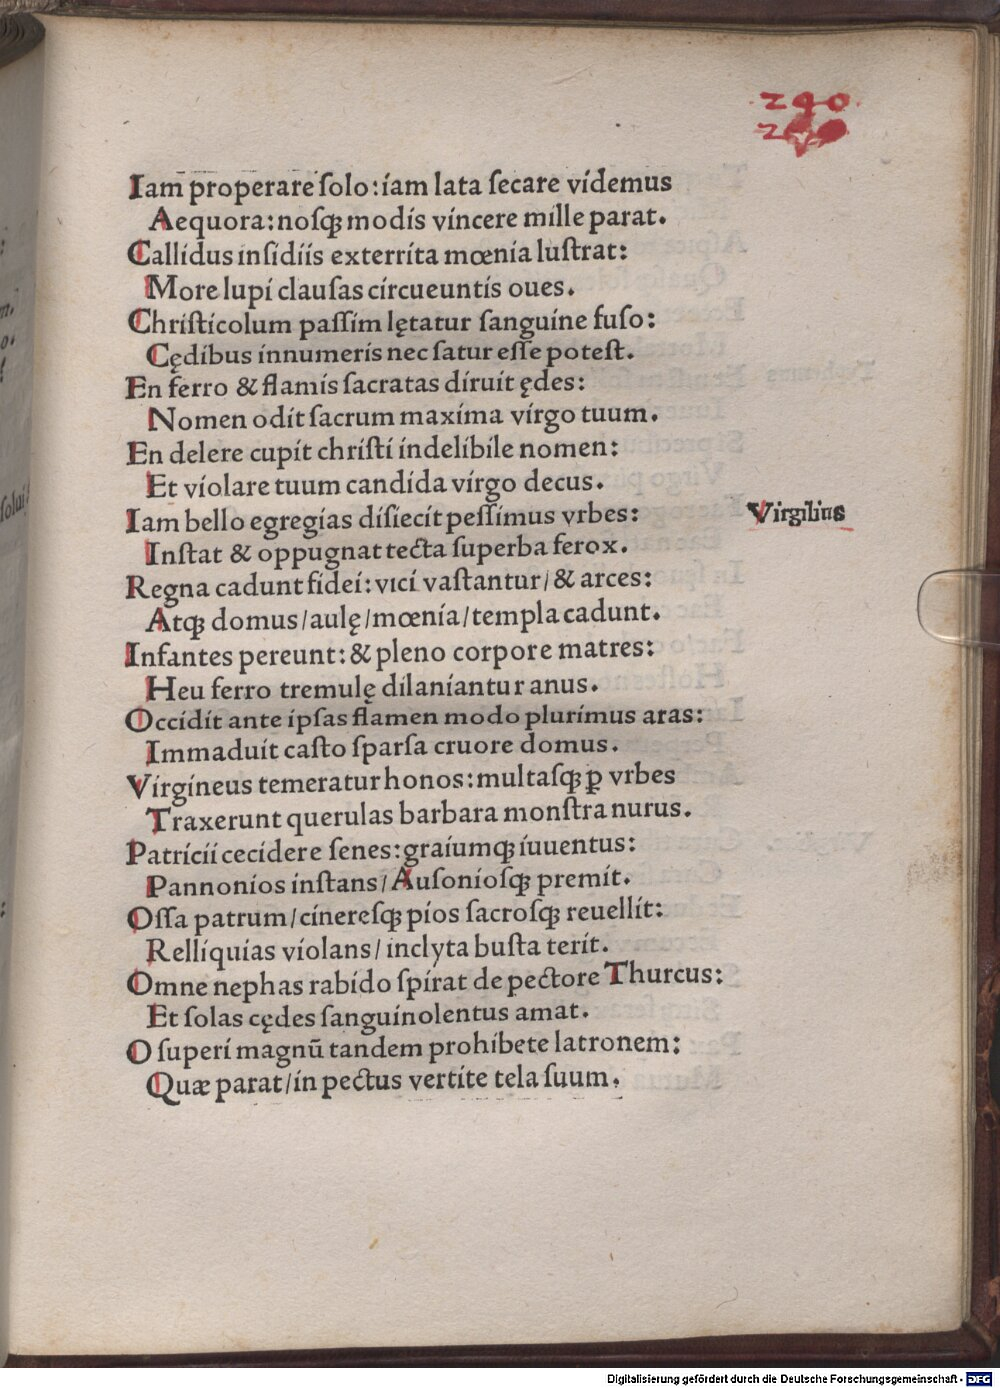 240
Iam properare ſolo: iam lata ſecare videmus
Aequora: noſqꝫ modis vincere mille parat.
Callidus inſidiis exterrita mœnia luſtrat:
More lupi clauſas circueuntis oues.
Chriſticolum paſſim lętatur ſanguine fuſo:
Cędibus innumeris nec ſatur eſſe poteſt.
En ferro & flamis ſacratas diruit ędes:
Nomen odit ſacrum maxima virgo tuum.
En delere cupit chriſti indelibile nomen:
Et violare tuum candida virgo decus.
Iam bello egregias diſiecit peſſimus vrbes:
Virgilius
Inſtat & oppugnat tecta ſuperba ferox.
Regna cadunt fidei: vici vaſtantur/ & arces:
Atqꝫ domus/ aulę/ mœnia/ templa cadunt.
Infantes pereunt: & pleno corpore matres:
Heu ferro tremulę dilaniantur anus.
Occidit ante ipſas flamen modo plurimus aras:
Immaduit caſto ſparſa cruore domus.
Virgineus temeratur honos: multaſqꝫ ꝑ vrbes
Traxerunt querulas barbara monſtra nurus.
Patricii cecidere ſenes: graiumqꝫ iuuentus:
Pannonios inſtans/ Auſonioſqꝫ premit.
Oſſa patrum/ cinereſqꝫ pios ſacroſqꝫ reuellit:
Relliquias violans/ inclyta buſta terit.
Omne nephas rabido ſpirat de pectore Thurcus:
Et ſolas cędes ſanguinolentus amat.
O ſuperi magnū tandem prohibete latronem:
Quæ parat/ in pectus vertite tela ſuum.
Digitalisierung gefördert durch die Deutsche Forschungsgemeinschaft - DFG